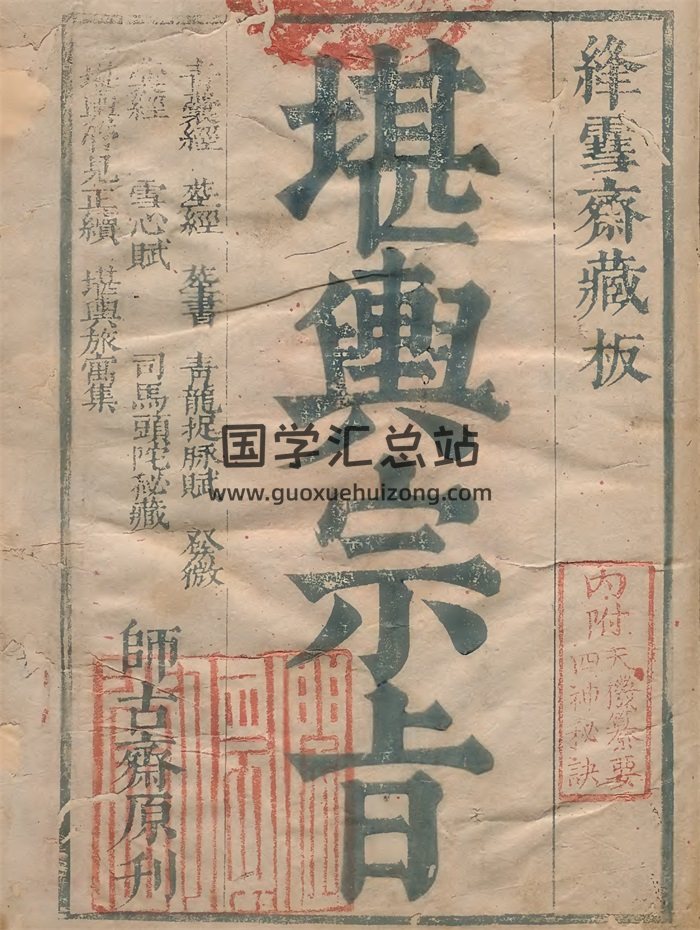 絳雪齋藏板
内附
天機纂要
四神秘訣
堪輿宗旨
青囊經 葬經 葬書 青龍捉脉賦 發微
經 雪心賦 司馬頭陀秘藏
堪輿管見正續 堪輿旅寓集
師古齋原刊
国学汇总站
www.guoxuehuizong.com